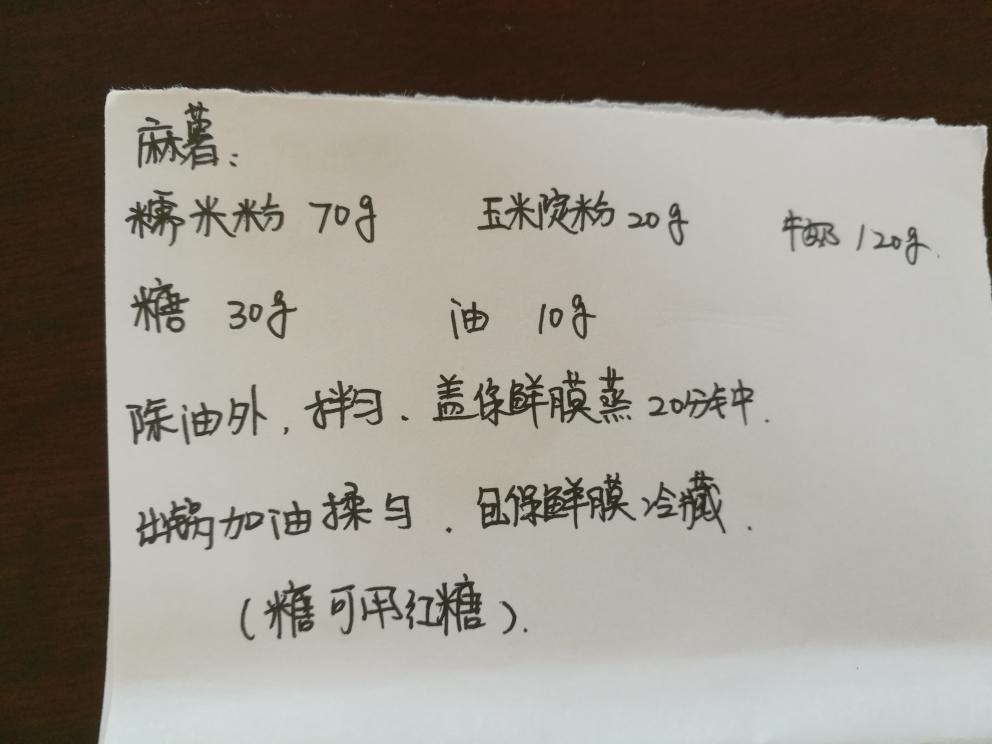 麻薯：
糯米粉 70g 玉米淀粉 20g 牛奶 120g.
糖 30g 油 10g
除油外，拌匀、盖保鲜膜蒸20分钟.
出锅加油揉匀.包保鲜膜冷藏.
(糖可用红糖).